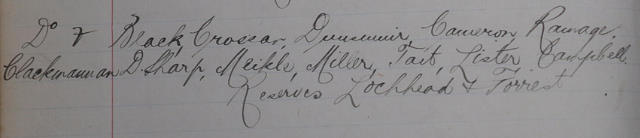 Do & Black, Crossar, Dunsmuir, Cameron, Ramage,
Clackmannan D. Sharp, Meikle, Miller, Tait, Lister, Campbell.
Reserves Lochhead & Forrest